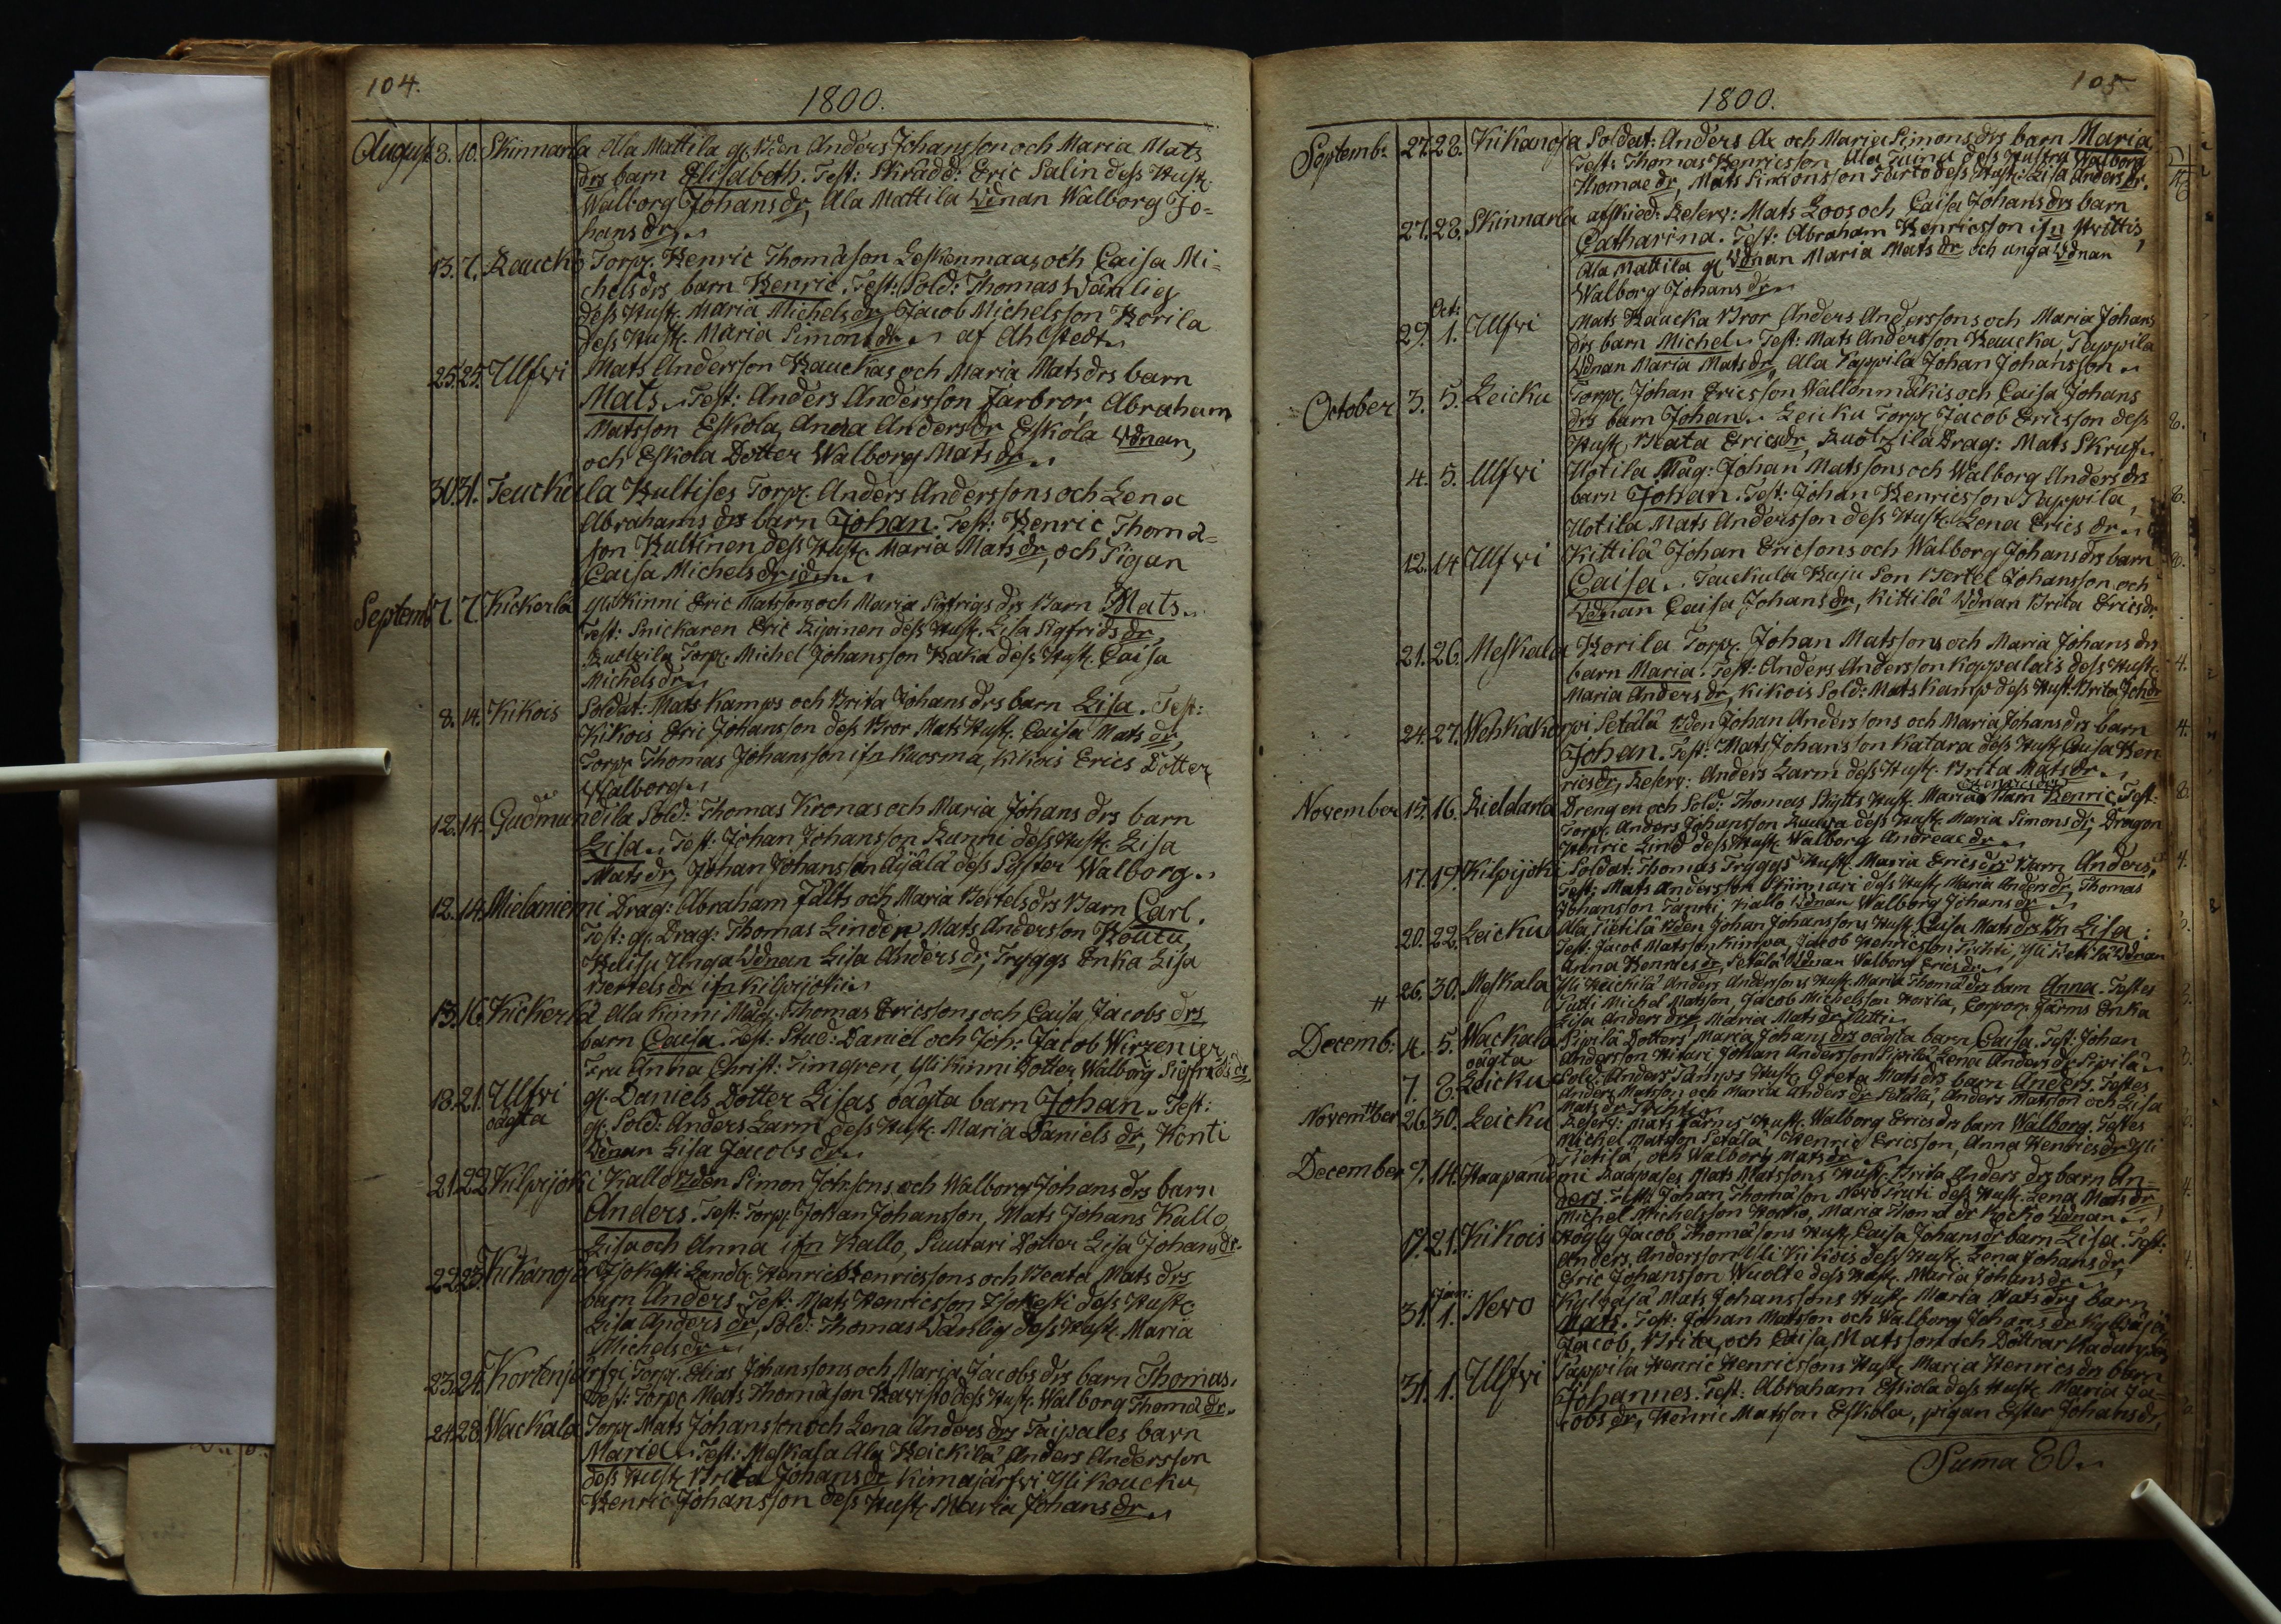 104.
1800.
August 8. 10. Skinnarla Ala Mattila gl. Vden Anders Johansson och Maria Mats
drs barn Elisabeth. Test: Skrädd: Eric Salin dess Hust.
Walborg Johans dr, Ala Mattila Vdnan Walborg Jo-
hans dr
13. 7. Raucko Torp. Henric Thomäson Leskenmaas och Caisa Mi-
chels drs barn Henric. Test: Sold: Thomas Wänlig
dess Hust. Maria Michels dr, Jacob Michelsson Horila
dess Hust. Maria Simons dr af Ahlstedt
25. 25. Ulfvi Mats Andersson Rauckas och Maria Mats drs barn
Mats. Test: Anders Andersson farbror, Abraham
Matsson Eskola, Anna Anders dr Eskola Vdnan,
och Eskola Dotter Walborg Mats dr
30. 31. Teuckula Hultises Torp. Anders Anderssons och Lena
Abrahams drs barn Johan. Test: Henric Thomä-
son Hultinen dess Hust. Maria Mats dr, och Pigan
Caisa Michels dr idem
Septemb. 7. 7. Kickerlä Yliskinni Eric Matssons och Maria Sigfrigs drs Barn Mats.
Test: Snickaren Eric Ripinen dess Hust. Lisa Sigfrids dr,
Ruotzila Torp. Michel Johansson Haka dess Hust. Caisa
Michels dr
8. 14. Kikois Soldat: Mats Kamps och Brita Johans drs barn Lisa. Test:
Kikois Eric Johansson dess Bror Mats Hust. Caisa Mats dr,
Torp. Thomas Johansson ifn Kuosma, Kikois Erics Dotter
Walborg
12. 14. Gudmundila Sold: Thomas Kronas och Maria Johans drs barn
Lisa. Test: Johan Johansson Runni dess Hust. Lisa
Mats dr, Johan Johansson Äijälä dess Syster Walborg.
12. 14. Mielaniemi Drag: Abraham Fälts och Maria Bertels drs Barn Carl.
Test: gl. Drag: Thomas Linden, Mats Andersson Houtu,
Heisu Unga Vdnan Lisa Anders dr, Tryggs Enka Lisa
Bertels dr ifn Kilpijoki
13. 16. Kickerlä Ala Kinni Måg: Thomas Ericssons och Caisa Jacobs drs
barn Caisa. Test: Stud: Daniel och Joh: Jacob Wirzenier,
Fru Anna Christ: Timgren, Yli Kinni Dotter Walborg Sigfrids dr
18. 21. Ulfvi gl. Daniels Dotter Lisas oägta barn Johan. Test:
oägta gl. Sold: Anders Larm dess Hust. Maria Daniels dr, Konti
Vdnan Lisa Jacobs dr
21. 22. Kilpijoki Kallo Vden Simon Johssons och Walborg Johans drs barn
Anders. Test: Torp. Johan Johansson, Mats Johans Kallo
Lisa och Anna ifn Kallo, Suutari Dotter Lisa Johans dr.
22. 23. Kikanoja Isokesti Landb. Henric Henricssons och Beata Mats drs
barn Anders. Test: Mats Henricsson Isokesti dess Hust.
Lisa Anders dr, Sold: Thomas Wänlig dess Hust. Maria
Michels dr
23. 24. Kortenjärfvi Torp. Elias Johanssons och Maria Jacobs drs barn Thomas.
Test: Torp. Mats Thomäson Hawisto dess Hust. Walborg Thomä dr.
24. 28. Wackala Torp. Mats Johansson och Lena Anders drs Taipales barn
Maria. Test: Meskala Ala Heickilä Anders Andersson
dess Hust. Brita Johans dr, Kimajärfvi Yli Koucku
Henric Johansson dess Hust. Maria Johans dr
105
1800.
Septemb: 27. 28. Kikanoja Soldat: Anders Ax och Maria Simons drs barn Maria
Test: Thomas Henricsson Ala dess Hustru Walborg
Thomae dr, Mats Simonsson Turto dess Hust: Lisa Anders dr.
27. 28. Skinnarla afskied: Reserv: Mats Loos och Caisa Johans drs barn
Catharina. Test: Abraham Henricsson ifn Hvittis,
Ala Mattila gl. Vdnan Maria Mats dr och unga Vdnan
Walborg Johans dr
Oct:
29. 1. Ulfvi Mats Raucka Bror Anders Anderssons och Maria Johans
drs barn Michel. Test: Mats Andersson Raucka, Pappila
Vdnan Maria Mats dr, Ala Pappila Johan Johansson
October 3. 5. Leicku Torp. Johan Ericsson Wallonmäkis och Caisa Johans
drs barn Johan. Leicku Torp. Jacob Ericsson dess 8.
Hust. Beata Erics dr, Ruotzila Drag: Mats Skruf
4. 5. Ulfvi Uotila Måg: Johan Matssons och Walborg Anders drs
barn Johan. Test: Johan Henricsson Pappila, 8.
Uotila Mats Andersson dess Hust. Lena Erics dr
12. 14 Ulfvi Kittilä Johan Ericsons och Walborg Johans drs barn 8.
Caisa. Teuckula Huju Son Bertel Johansson och
Vdnan Caisa Johans dr, Kittilä Vdnan Brita Erics dr
21. 26. Meskala Horila Torp. Johan Matssons och Maria Johans drs
barn Maria. Test: Anders Andersson Koppalais dess Hust. 4.
Maria Anders dr, Kikois Sold: Mats Kamp dess Hust. Brita Joh dr
24. 27. Wehkakorpi Setälä Vden Johan Anderssons och Maria Johans drs barn 4.
Johan. Test: Mats Johansson Katara dess Hust. Caisa Hen
rics dr, Reserv: Anders Larm dess Hust. Brita Mats dr
November 15. 16. Rieldand Drengen och Sold: Thomas Skytts Hust. Maria Henrics drs Barn Henric. Test: 8.
Torp. Anders Johansson Ruuva dess Hust. Maria Simons dr, Dragon
Henric Lind dess Hust. Walborg Andreae dr
17. 19. Kilpijoki Soldat: Thomas Tryggs Hust. Maria Erics drs Barn Anders. 4.
Test: Mats Andersson Skinnari dess Hust. Maria Anders dr, Thomas
Johansson Tanni, Kallo Vdnan Walborg Johans dr
20. 22. Leicku Ala Pietilä Vden Johan Johanssons Hust. Caisa Mats drs Bn Lisa: 3.
Test: Jacob Matsson Kimpa, Jacob Henricsson Pihti, Yli Pietilä Vdnan
Anna Henrics dr, Setälä Vdnan Walborg Erics dr
26. 30. Meskala Yli Heickilä Anders Anderssons Hust. Maria Thomä drs barn Anna. Testes 3.
Putti Michel Matsson, Jacob Michelsson Horila, Corpor. Järms Enka
Lisa Anders dr, Maria Mats dr Putti
Decemb: 4. 5. Wackala Pipilä Dotters Maria Johans drs oägta barn Caisa. Test: Johan
oägta Andersson Hitari Johan Andersson Pipilä Lena Anders dr Pipilä 3.
7. 8. Leicku Sold: Anders Tamps Hust. Greta Mats drs barn Anders. Testes
Anders Matsson och Maria Anders dr Setälä, Anders Matsson och Lisa
Mats dr Pihti
November 26. 30. Leicku Reserv: Mats Järns Hust. Walborg Erics drs barn Walborg. Testes
Michel Matsson Setälä, Henric Ericsson, Anna Henrics dr Yli
Pietilä, och Walborg Mats dr
December 9. 14. Haapaniemi Raapales Mats Matssons Hust. Brita Anders drs barn An-
ders. Test: Johan Thomäson Nevo Pruti dess Hust. Lena Mats dr 4.
Michel Michelsson Horko, Maria Thomä dr Kocko Vdnan
17. 21. Kikois Högly Jacob Thomäsons Hust. Caisa Johans dr barn Lisa. Test:
Anders Andersson Yli Kikois dess Hust. Lena Johans dr,
Eric Johansson Wuolte dess Hust. Maria Johans dr
Jan:
31. 1. Nevo Kylänjä Mats Johanssons Hust. Maria Mats drs barn
Mats. Test: Johan Matsson och Walborg Johans dr
Jacob, Brita, och Caisa, Matsson och Döttrar
31. 1. Ulfvi Pappila Henric Henricssons Hust. Maria Henrics drs barn
Johannes. Test: Abraham Eskola dess Hust. Maria Ja-
cobs dr, Henric Matsson Eskola, pigan Ester Johans dr,
Suma 80